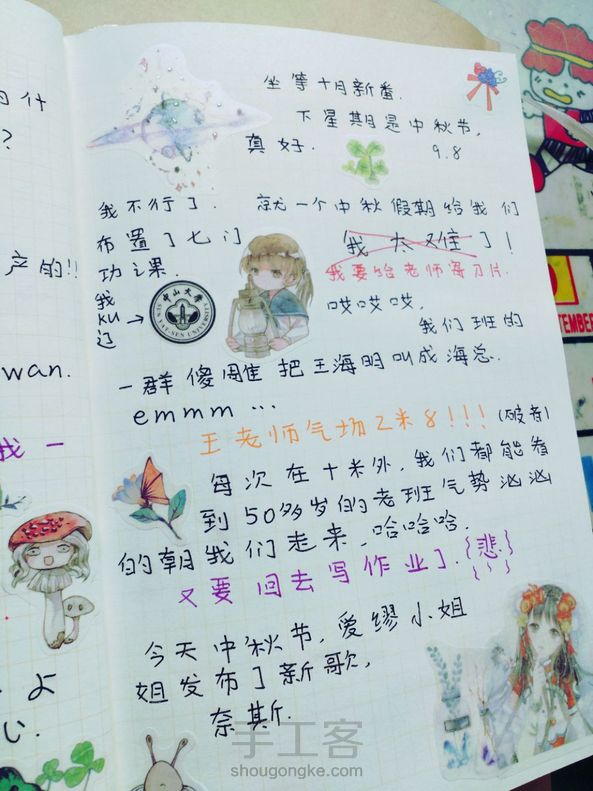 什
?
产的!!
wan.
我一
よ
心.
坐等十月新番.
下星期是中秋节,
真好. 9.8
我不行了. 就一个中秋假期给我们
布置了七门 (我太难了!
功课. 我要给老师寄刀片.
我
KU
过→
中山大學
SUN YAT-SEN UNIVERSITY
哎哎哎,
我们班的
一群傻雕把王海明叫成海总.
emmm ...
王老师气场2米8!!! (破音)
每次在十米外,我们都能看
到50多岁的老班气势汹汹
的朝我们走来,哈哈哈.
又要回去写作业了.{悲.}
今天中秋节,爱缪小姐
姐发布了新歌,
奈斯.
TEMBER
手工客
shougongke.com